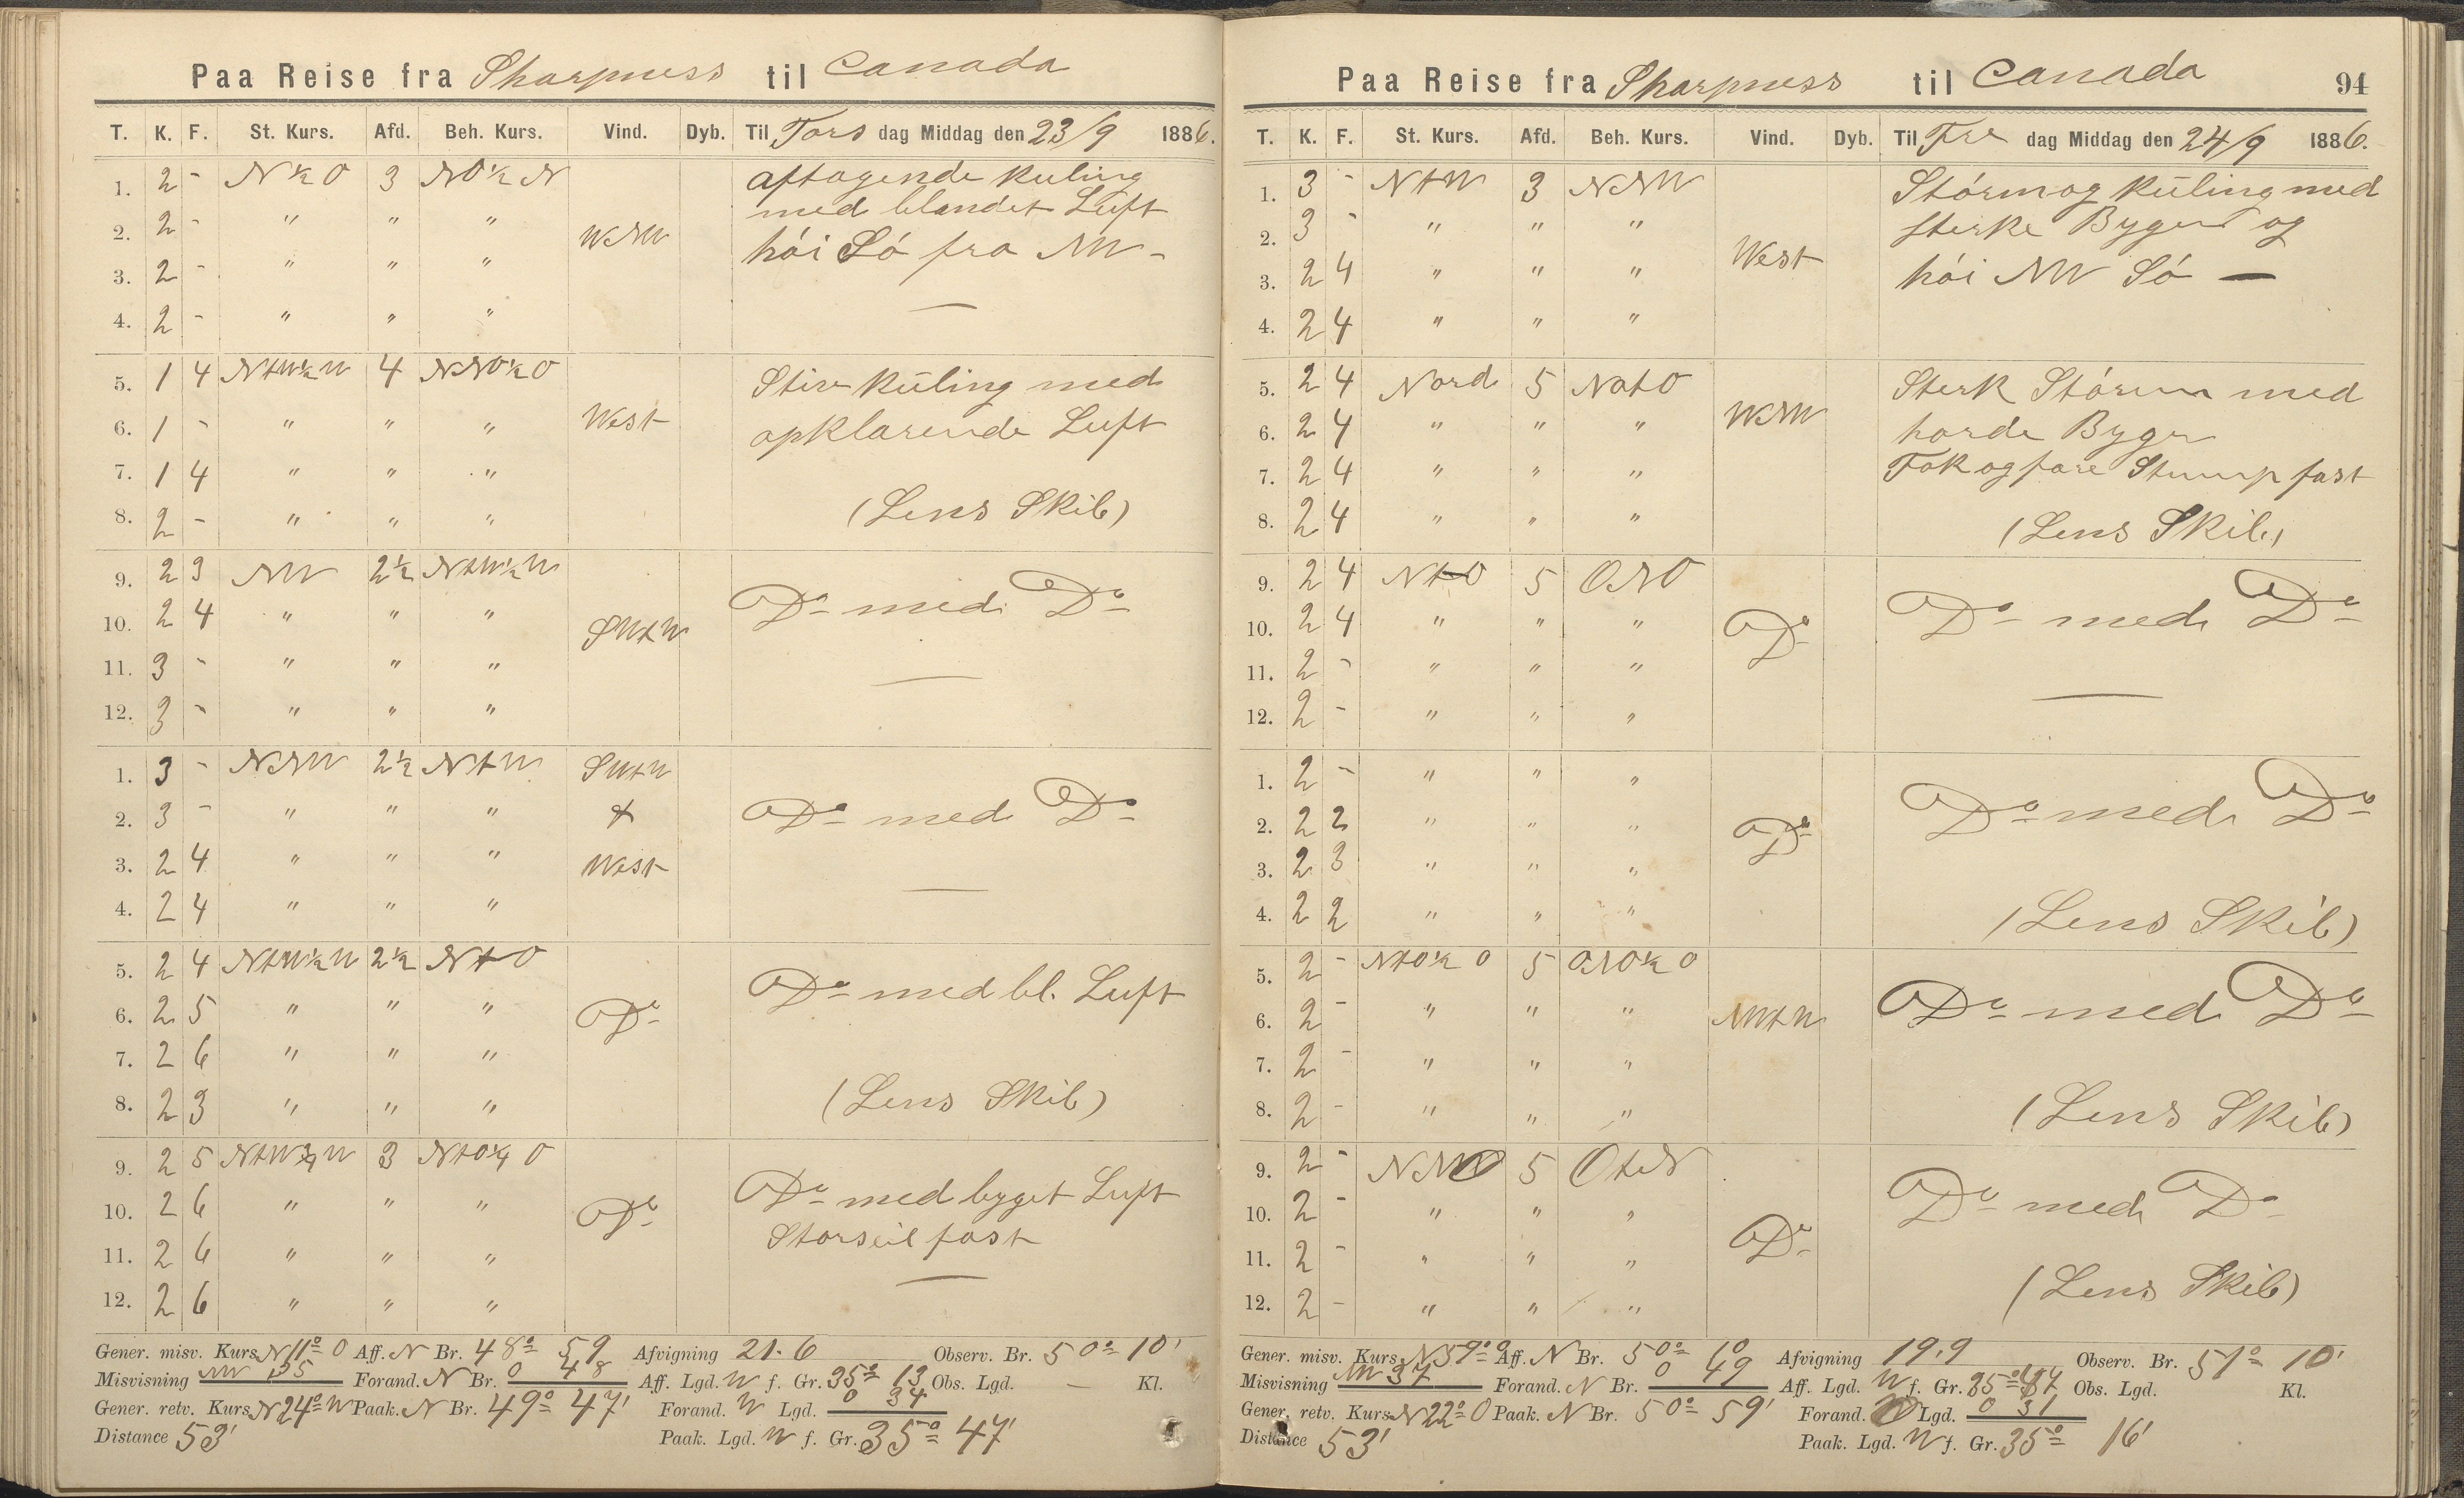 Paa Reise fra Sharpness til Canada
T. K. F. St. Kurs. Afd. Beh. Kurs. Vind. Dyb. Til Tors dag Middag den 23/9 1886.
1. 2 - N½O 3 NO½N aftagende Kuling
med blandet Luft
2. 2 - " " " WNW
høi Sö fra NW -
3. 2 - " " "
4. 2 - " " "
5. 1 4 NtW½W 4 NNO½O Stiv Kúling med
6. 1 - " " " West opklarende Luft
7. 1 4 " " "
8. 2 - " " " (Lens Skib)
9. 2 3 NW 2½ NtW½W Do med Do
10. 2 4 " " " SWtW
11. 3 - " " "
12. 3 - " " "
1. 3 - NNW 2½ NtW SWtW
2. 3 - " " " & Do med Do
3. 2 4 " " " West
4. 2 4 " " "
5. 2 4 NtW½W 2½ NtO Do med bl. Luft
6. 2 5 " " " Do
7. 2 6 " " "
8. 2 3 " " " (Lens Skib)
9. 2 5 NtW¾W 3 NtO¼O Do med byget Luft
10. 2 6 " " " Do Storseil fast
11. 2 6 " " "
12. 2 6 " " "
Gener. misv. Kurs N11°O Aff. N Br. 48° 59 Afvigning 21.6 Observ. Br. 50° 10'
Misvisning NW 35 Forand. N Br. 0 48 Aff. Lgd. W f. Gr. 35° 13 Obs. Lgd. — Kl.
Gener. retv. Kurs N24°W Paak. N Br. 49° 47' Forand. W Lgd. 0 34
Distance 53' Paak. Lgd. W f. Gr. 35° 47'
Paa Reise fra Sharpness til Canada 94
T. K. F. St. Kurs. Afd. Beh. Kurs. Vind. Dyb. Til Fre dag Middag den 24/9 1886.
1. 3 - NtW 3 NNW Störm og Kúling med
2. 3 - " " " sterke Byger og
3. 2 4 " " " West höi NW Sö —
4. 2 4 " " "
5. 2 4 Nord 5 NotO Sterk Storm med
6. 2 4 " " " WNW harde Byger
7. 2 4 " " " Fok og fore Stump fast
8. 2 4 " " " (Lens Skib)
9. 2 4 NtO 5 ONO Do med Do
10. 2 4 " " " Do
11. 2 - " " "
12. 2 - " " "
1. 2 - " " "
2. 2 2 " " " Do Do med Do
3. 2 3 " " "
4. 2 2 " " " (Lens Skib)
5. 2 - NtO½O 5 ONO½O
6. 2 - " " " NWtW Do med Do
7. 2 - " " "
8. 2 - " " " (Lens Skib)
9. 2 - NNO 5 OtN
10. 2 - " " " Do med Do
11. 2 - " " " Do
12. 2 - " " " (Lens Skib)
Gener. misv. Kurs N59°O Aff. N Br. 50° 10 Afvigning 19.9 Observ. Br. 51° 10'
Misvisning NW 37 Forand. N Br. 0 49 Aff. Lgd. W f. Gr. 35° 47 Obs. Lgd. Kl.
Gener. retv. Kurs N22°O Paak. N Br. 50° 59' Forand. O Lgd. 0 31
Distance 53' Paak. Lgd. W f. Gr. 35° 16'